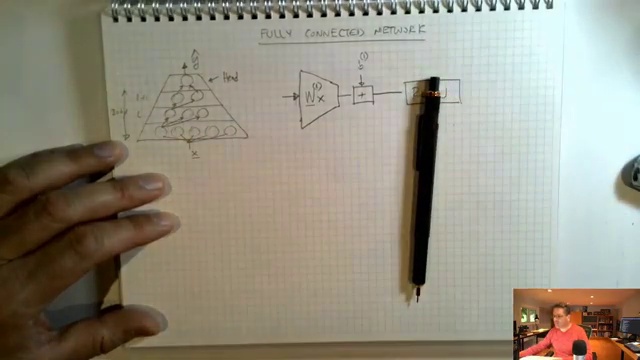 FULLY CONNECTED NETWORK
ŷ
Head
W⁽¹⁾x
b⁽¹⁾
+
L
x